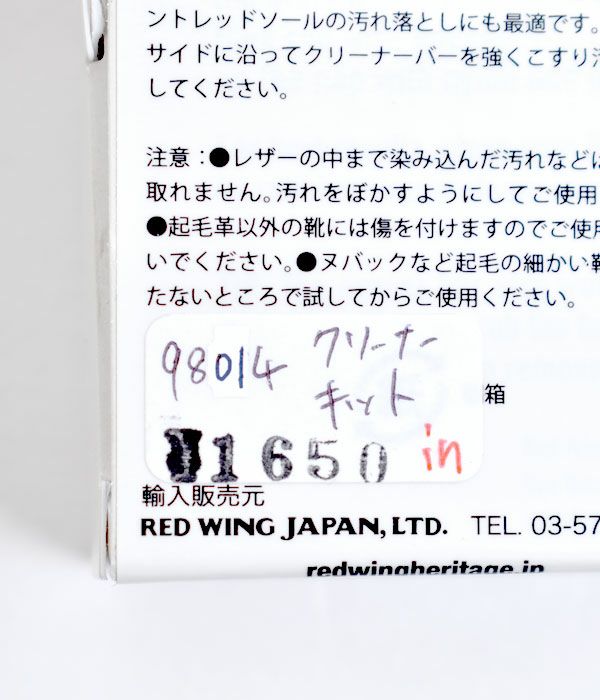 ントレッドソールの汚れ落としにも最適です。
サイドに沿ってクリーナーバーを強くこすり汚
してください。
注意：●レザーの中まで染み込んだ汚れなどは
取れません。汚れをぼかすようにしてご使用
●起毛革以外の靴には傷を付けますのでご使用
いでください。●ヌバックなど起毛の細かい靴
たないところで試してからご使用ください。
98014 クリーナー
キット
箱
1650 in
輸入販売元
RED WING JAPAN, LTD. TEL. 03-57
redwingheritage.jp